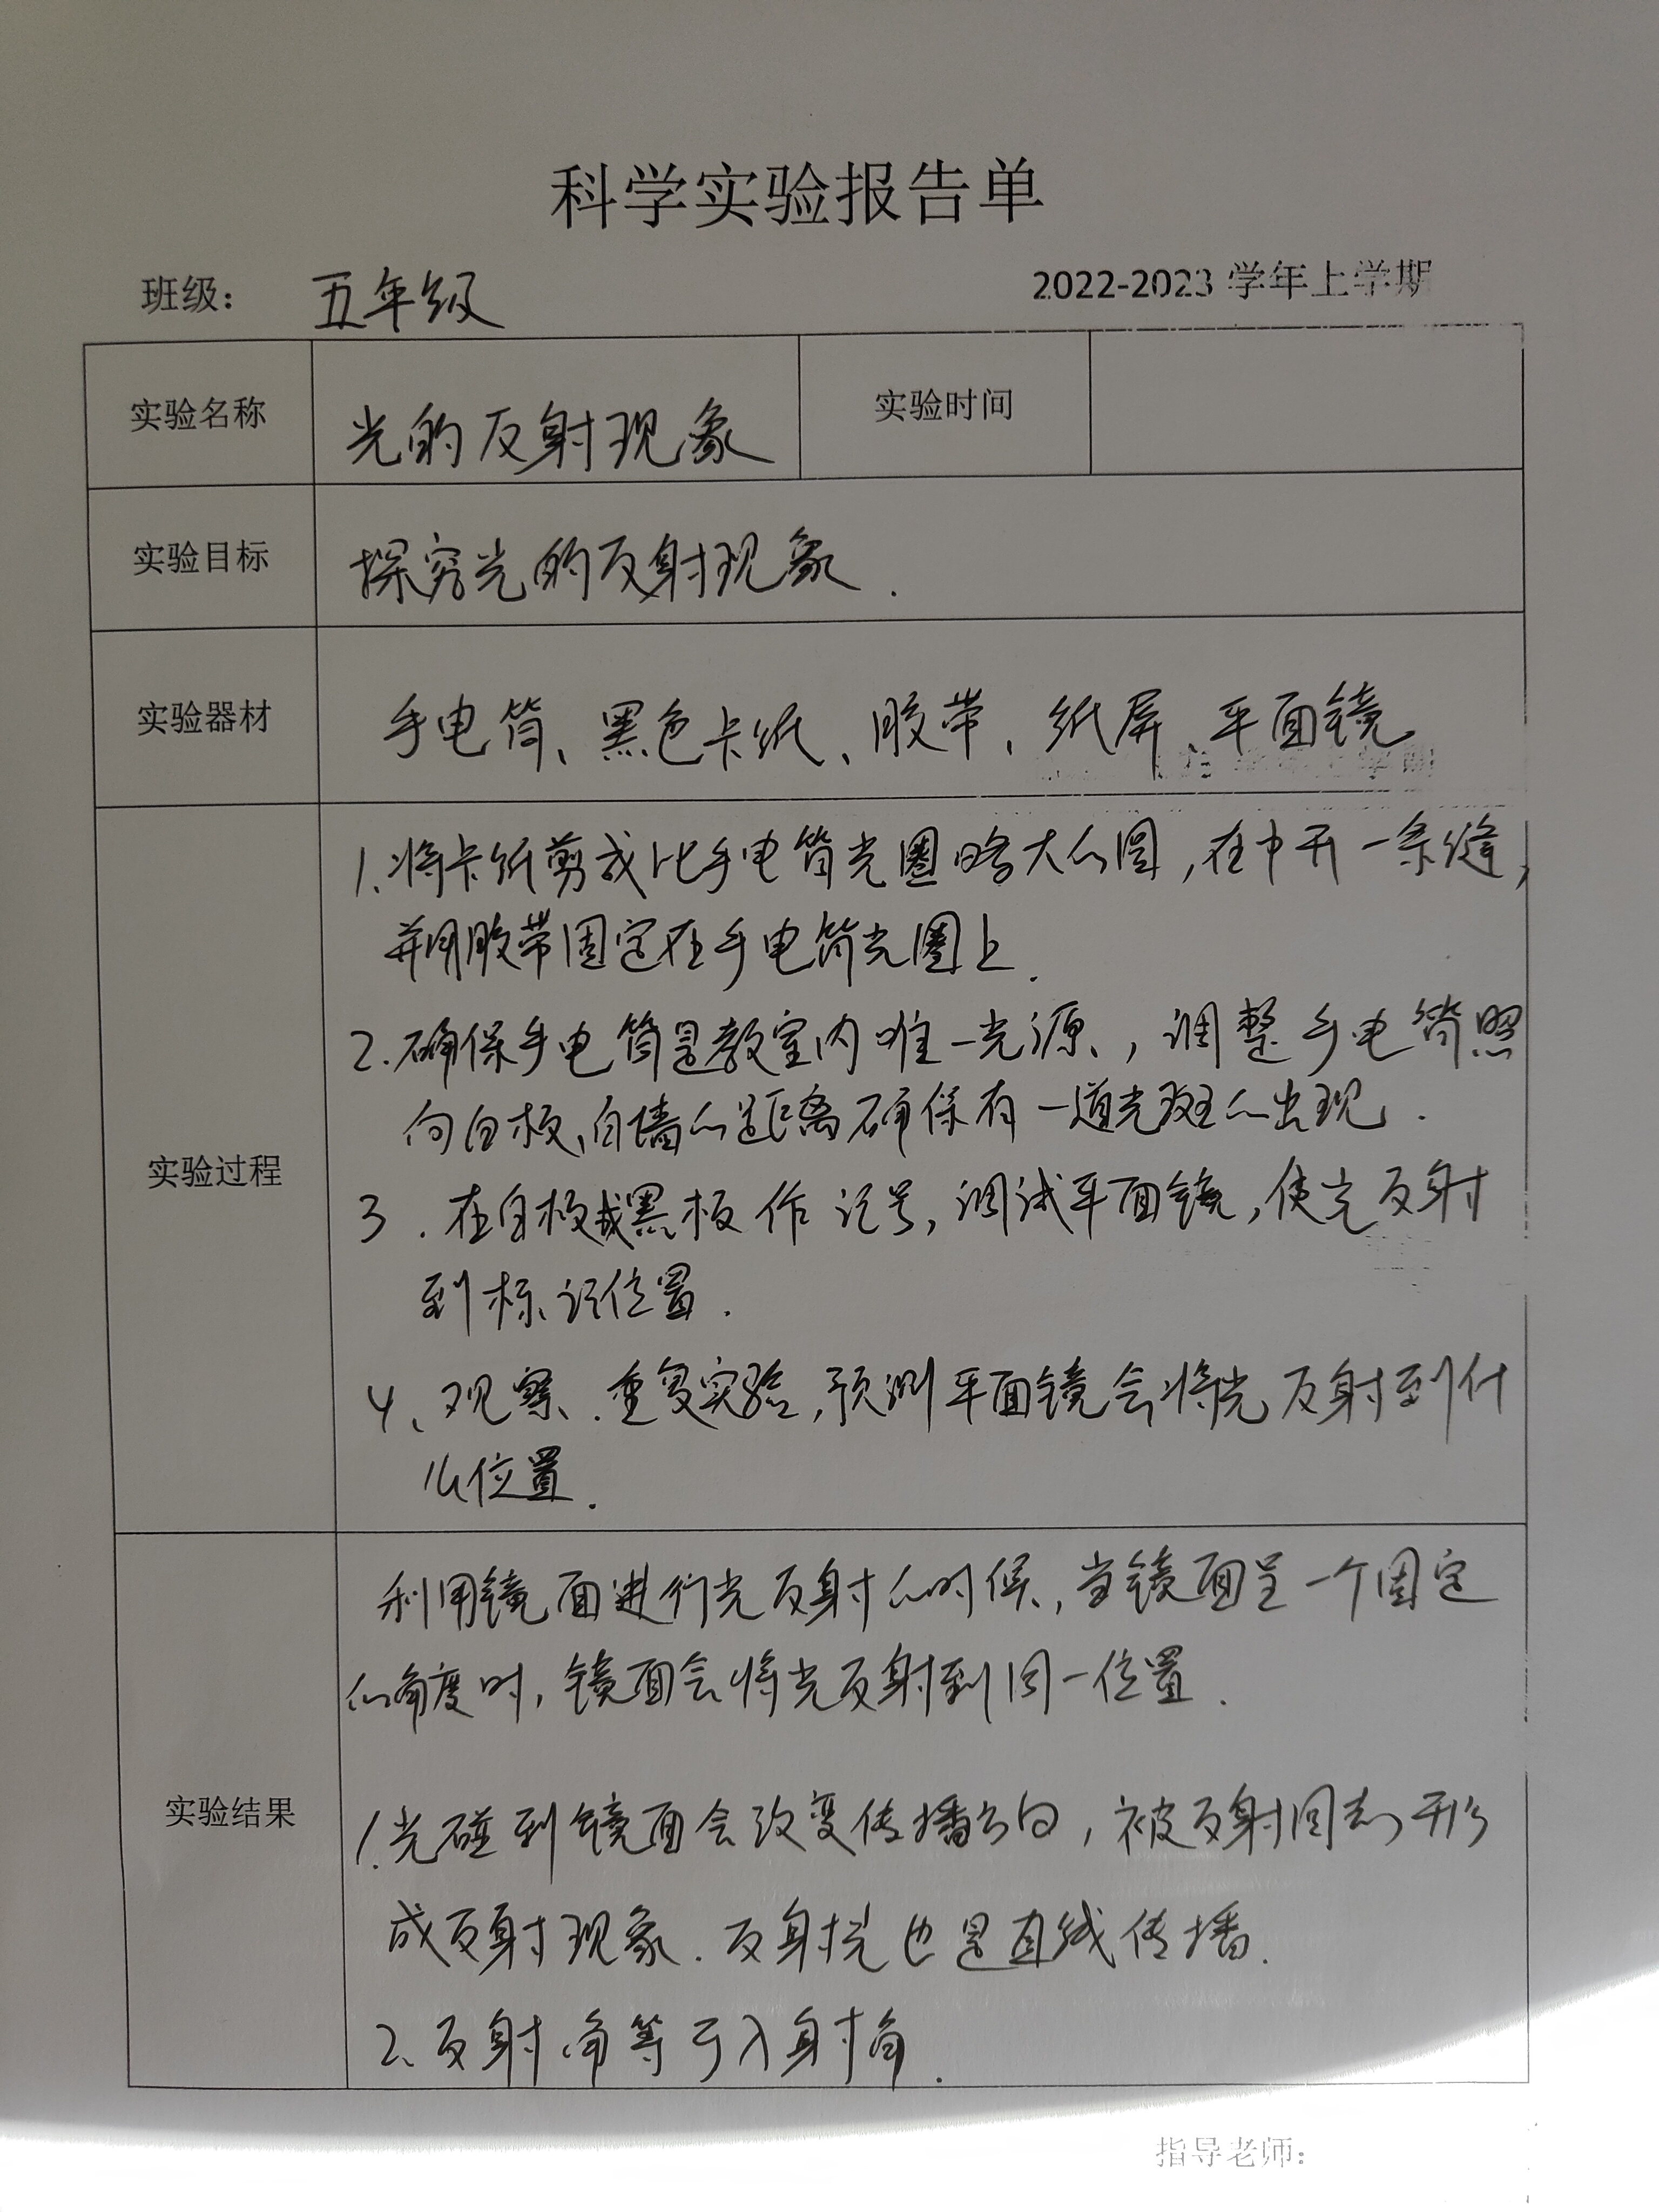 科学实验报告单
班级： 五年级 2022-2023 学年上学期
实验名称 光的反射现象 实验时间
实验目标 探究光的反射现象.
实验器材 手电筒、黑色卡纸、胶带、纸屏、平面镜
实验过程
1.将卡纸剪成比手电筒光圈略大的圆,在中开一条缝,
并用胶带固定在手电筒光圈上.
2.确保手电筒是教室内唯一光源,调整手电筒照
向白板、白墙的距离确保有一道光斑的出现.
3.在白板或黑板作记号,调试平面镜,使光反射
到标记位置.
4、观察.重复实验,预测平面镜会将光反射到什
么位置.
实验结果
利用镜面进行光反射的时候,当镜面呈一个固定
的角度时,镜面会将光反射到同一位置.
1.光碰到镜面会改变传播方向,被反射回去形
成反射现象.反射光也是直线传播.
2、反射角等于入射角.
指导老师：